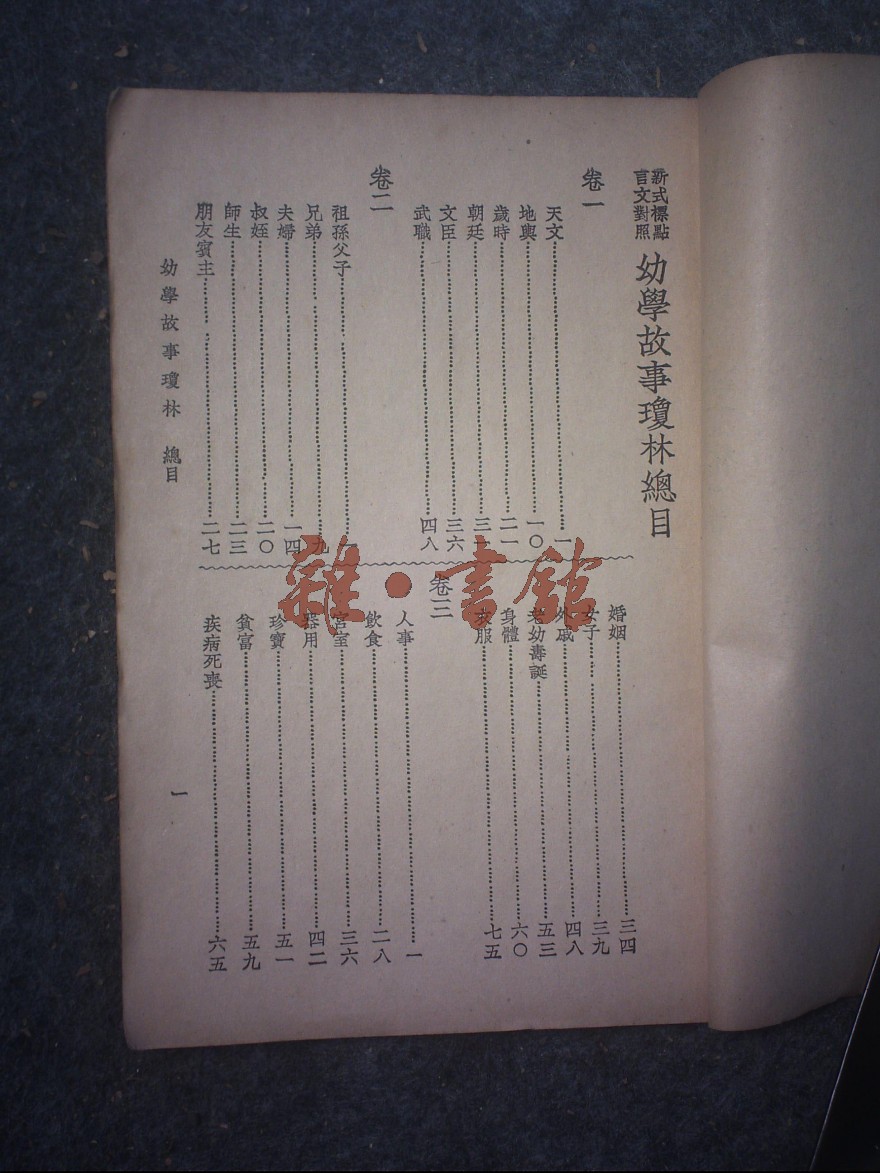 新式標點
言文對照
幼學故事瓊林總目
卷一
天文 一
地輿 一〇
歲時 二一
朝廷 三一
文臣 三六
武職 四八
卷二
祖孫父子 一
兄弟 九
夫婦 一四
叔姪 二〇
師生 二三
朋友賓主 二七
婚姻 三四
女子 三九
外戚 四八
老幼壽誕 五三
身體 六〇
衣服 七五
卷三
人事 一
飲食 二八
宮室 三六
器用 四二
珍寶 五一
貧富 五九
疾病死喪 六五
幼學故事瓊林 總目
一
雜·書館